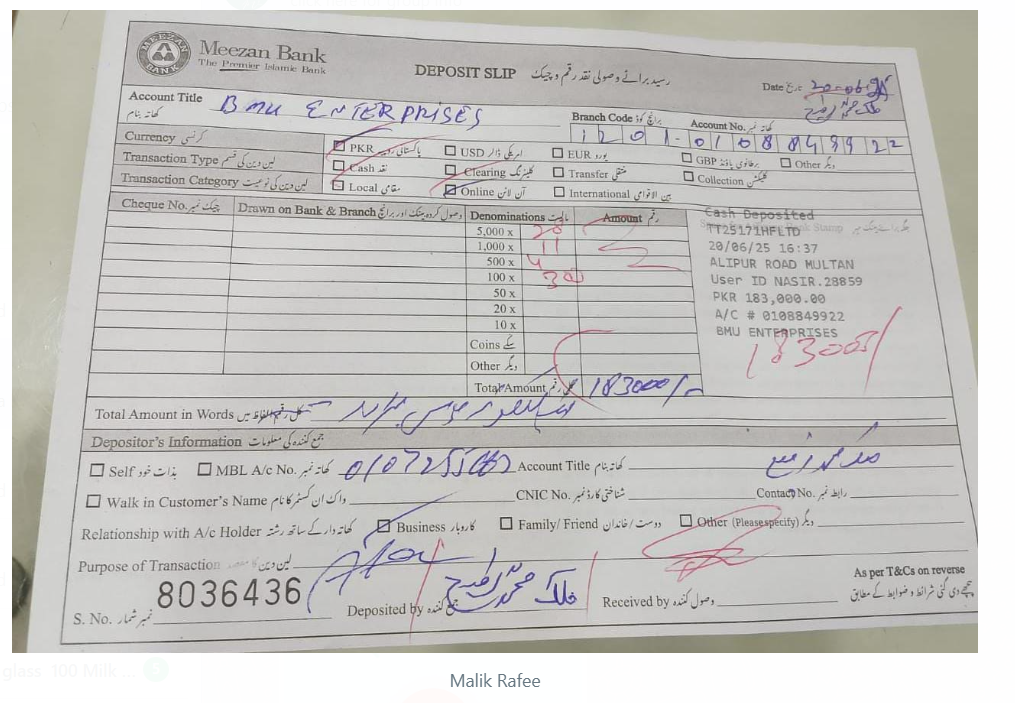 Meezan Bank
The Premier Islamic Bank
MEEZAN BANK
DEPOSIT SLIP رسید برائے وصولی نقد رقم و چیک
Date تاریخ 20-06-25
Account Title کھاتہ بنام BMU ENTERPRISES
Branch Code برانچ کوڈ 1201 - Account No. کھاتہ نمبر 0108849922
Currency کرنسی PKR پاکستانی روپیہ USD امریکی ڈالر EUR یورو GBP برطانوی پاؤنڈ Other دیگر
Transaction Type لین دین کی قسم Cash نقد Clearing کلیئرنگ Transfer منتقلی Collection کلیکشن
Transaction Category لین دین کی نوعیت Local مقامی Online آن لائن International بین الاقوامی
Cheque No. چیک نمبر Drawn on Bank & Branch Denominations مالیت Amount رقم
5,000 x 28
1,000 x 11
500 x 4
100 x 300
50 x
20 x
10 x
Coins سکے
Other دیگر
Total Amount کل رقم 183000/-
Cash Deposited
TT25171HFLTD
20/06/25 16:37
ALIPUR ROAD MULTAN
User ID NASIR.28859
PKR 183,000.00
A/C # 0108849922
BMU ENTERPRISES
Total Amount in Words کل رقم الفاظ میں
Depositor's Information جمع کنندہ کی معلومات
Self بذات خود MBL A/c No. کھاتہ نمبر Account Title کھاتہ بنام
Walk in Customer's Name واک ان کسٹمر کا نام CNIC No. شناختی کارڈ نمبر Contact No. رابطہ نمبر
Relationship with A/c Holder کھاتہ دار کے ساتھ رشتہ Business کاروبار Family/ Friend دوست/خاندان Other (Please specify) دیگر
Purpose of Transaction
As per T&Cs on reverse
پیچھے دی گئی شرائط و ضوابط کے مطابق
S. No. نمبر شمار 8036436 Deposited by جمع کنندہ Received by وصول کنندہ
Malik Rafee